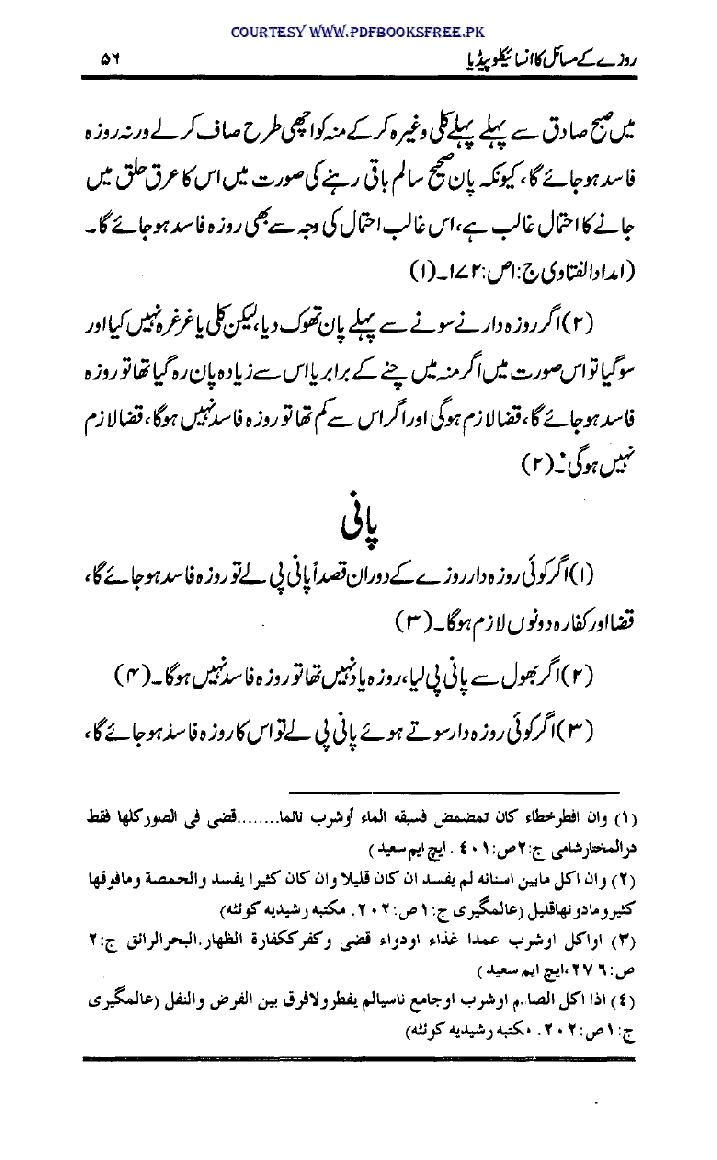 COURTESY WWW.PDFBOOKSFREE.PK
روزے کے مسائل کا انسائیکلوپیڈیا ۵۶
میں صبح صادق سے پہلے پہلے کلی وغیرہ کرکے منہ کو اچھی طرح صاف کرلے ورنہ روزہ
فاسد ہوجائے گا، کیونکہ پان صحیح سالم باقی رہنے کی صورت میں اس کا عرق حلق میں
جانے کا احتمال غالب ہے، اس غالب احتمال کی وجہ سے بھی روزہ فاسد ہوجائے گا۔
(امدادالفتاوی ج:۱ص:۱۷۲۔(۱)
(۲) اگر روزہ دار نے سونے سے پہلے پان تھوک دیا، لیکن کلی یا غرغرہ نہیں کیا اور
سوگیا تو اس صورت میں اگر منہ میں چنے کے برابر یا اس سے زیادہ پان رہ گیا تھا تو روزہ
فاسد ہوجائے گا، قضا لازم ہوگی اور اگر اس سے کم تھا تو روزہ فاسد نہیں ہوگا، قضا لازم
نہیں ہوگی۔(۲)
پانی
(۱) اگر کوئی روزہ دار روزے کے دوران قصداً پانی پی لے تو روزہ فاسد ہوجائے گا،
قضا اور کفارہ دونوں لازم ہوگا۔(۳)
(۲) اگر بھول سے پانی پی لیا، روزہ یاد نہیں تھا تو روزہ فاسد نہیں ہوگا۔(۴)
(۳) اگر کوئی روزہ دار سوتے ہوئے پانی پی لے تو اس کا روزہ فاسد ہوجائے گا،
(۱) وان افطر خطاء کان تمضمض فسبقه الماء أوشرب نائما........قضی فی الصور کلها فقط
درالمختار شامی ج:۲ص:٤۰۱ . ایچ ایم سعید)
(۲) وان اکل مابین اسنانه لم یفسد ان کان قلیلا وان کان کثیرا یفسد والحمصة ومافوقها
کثیر ومادونها قلیل (عالمگیری ج:۱ص:۲۰۲. مکتبه رشیدیه کوئٹه)
(۳) اواکل اوشرب عمدا غذاء اودواء قضی وکفر ککفارة الظهار.البحرالرائق ج:۲
ص:۲۷٦،ایچ ایم سعید)
(٤) اذا اکل الصائم اوشرب اوجامع ناسیالم یفطر ولافرق بین الفرض والنفل (عالمگیری
ج:۱ص:۲۰۲. مکتبه رشیدیه کوئٹه)